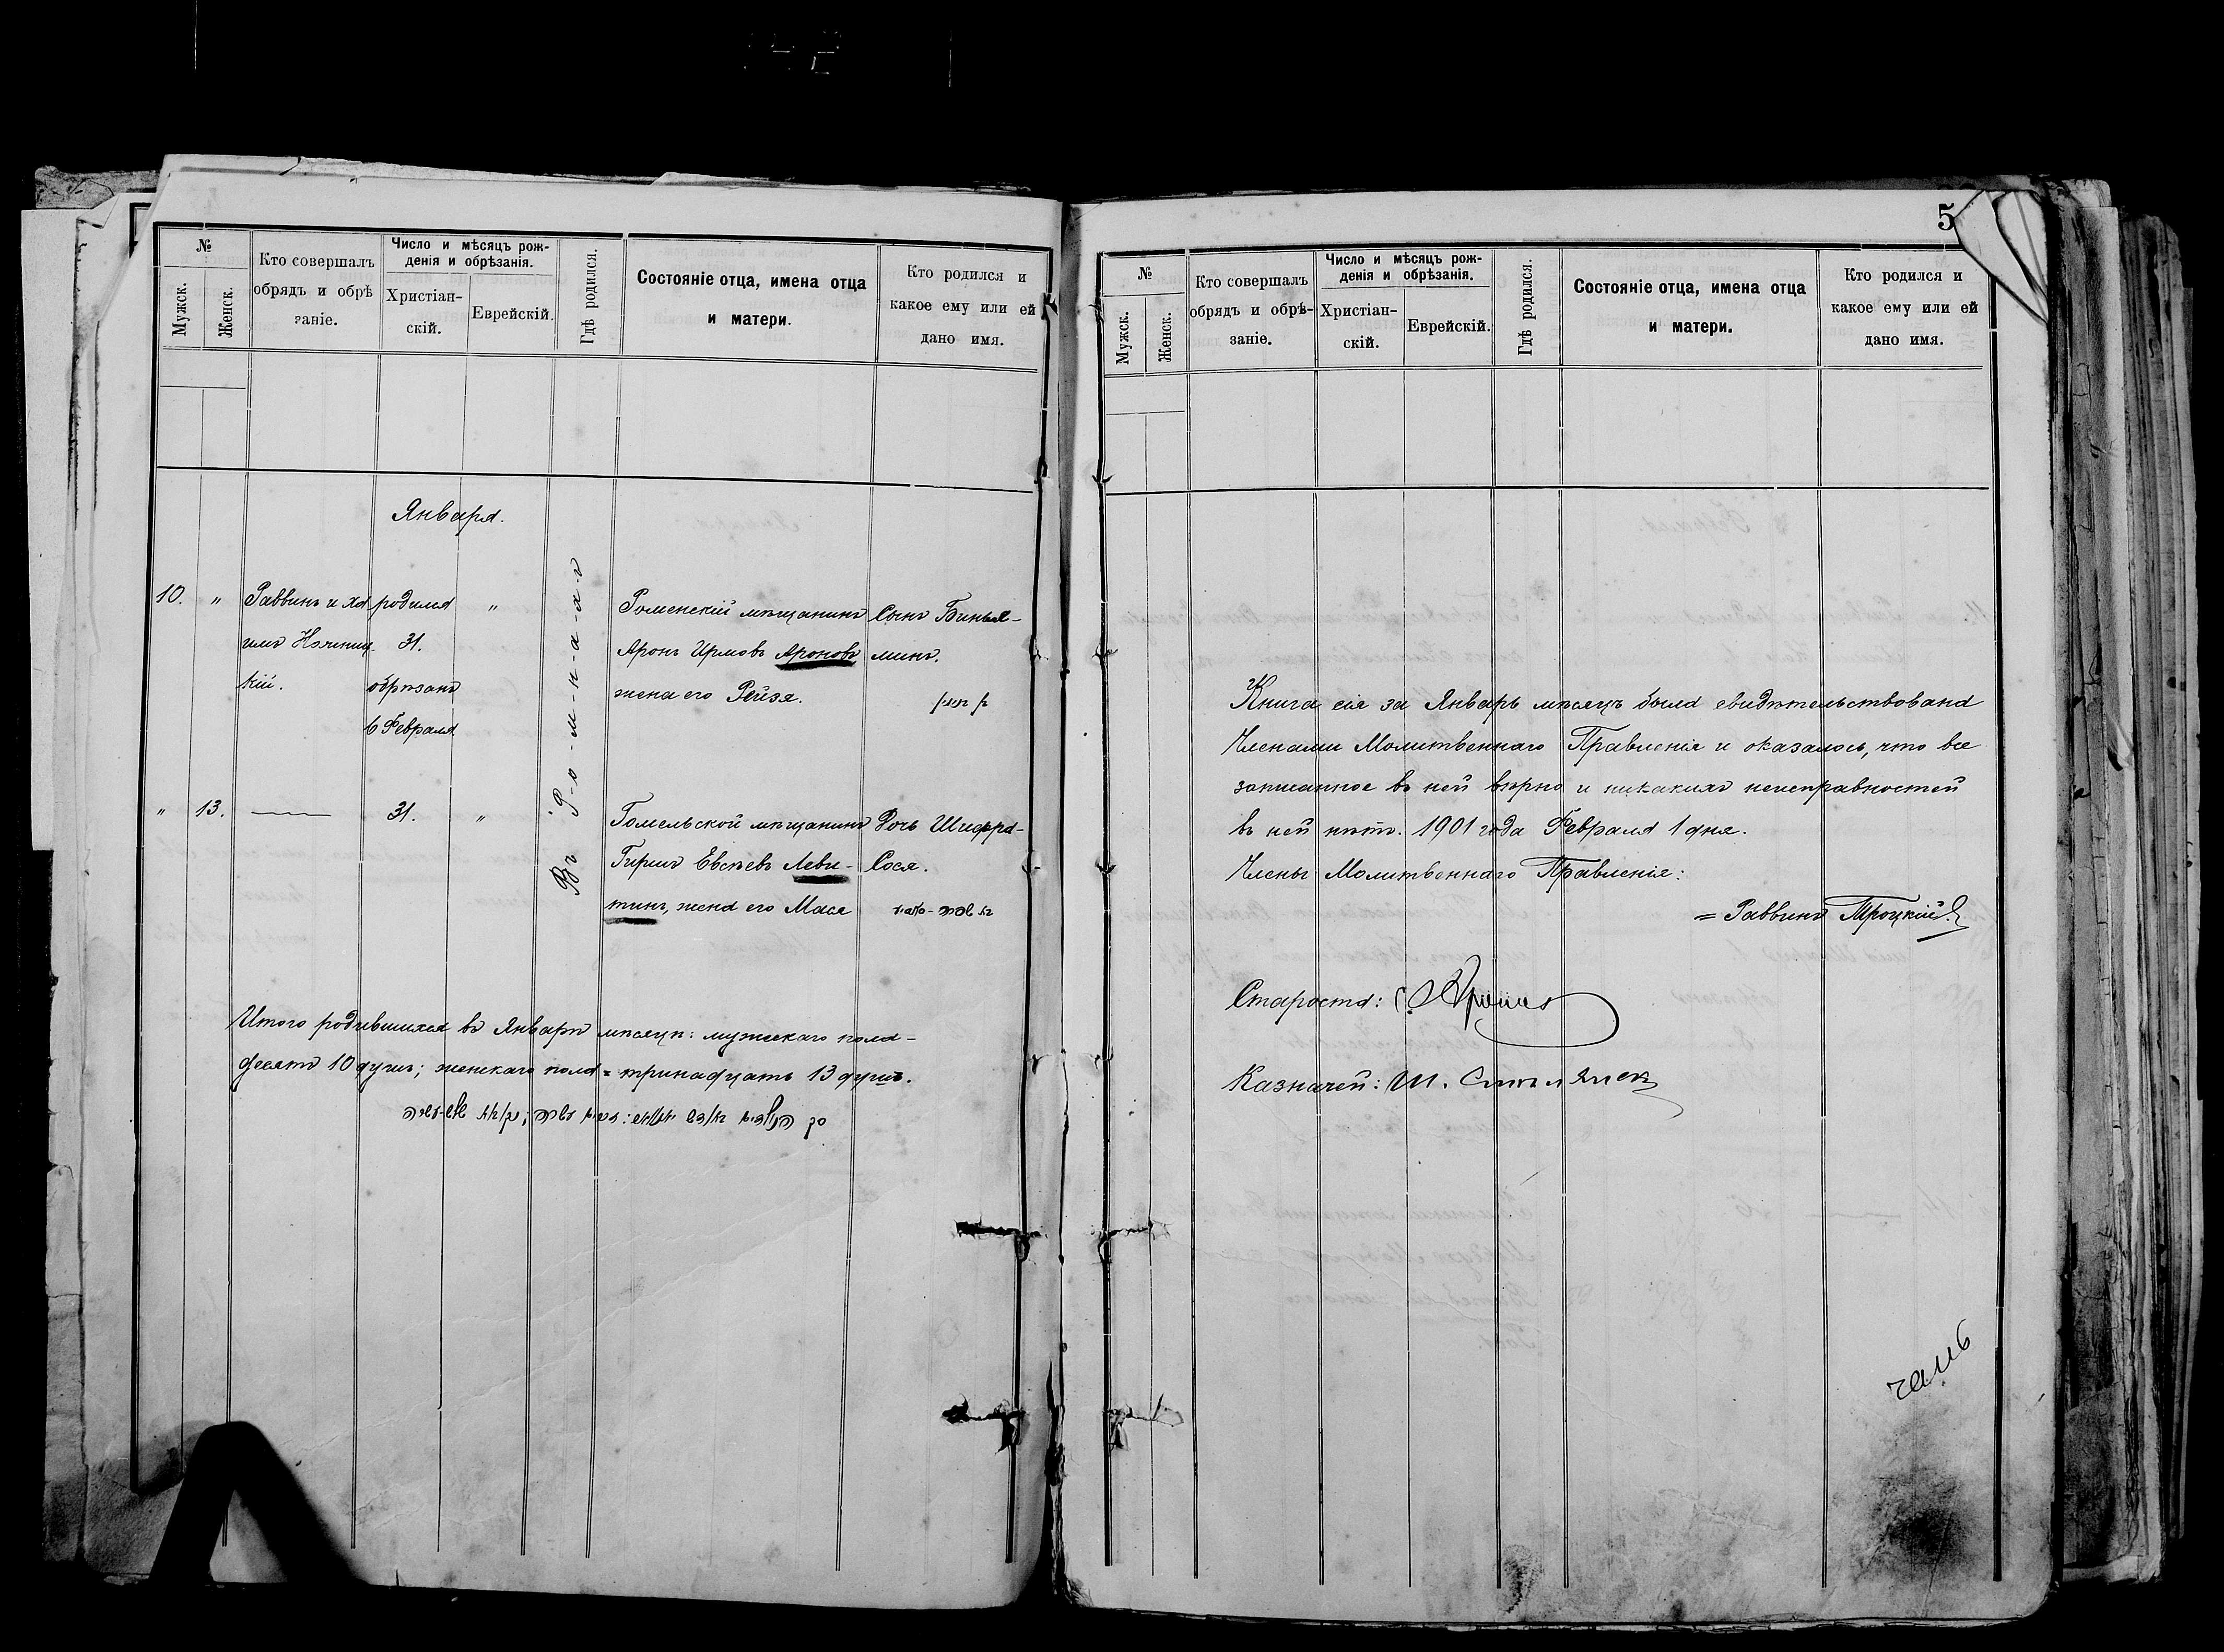 №
Мужск.
Женск.
Кто совершалъ
обрядъ и обрѣ
заніе.
Число и мѣсяцъ рож-
денія и обрѣзанія.
Христіан-
скій.
Еврейскій.
Гдѣ родился.
Состояніе отца, имена отца
и матери.
Кто родился и
какое ему или ей
дано имя.
Января.
10. " Раввинъ и Ха родился " Роменскій мѣщанинъ Сынъ Бинья-
31. Аронъ Ирмовъ Ароновъ минъ.
кій. обрѣзанъ жена его Рейзя.
6 Февраля
Въ Р-о-м-н-а-х-ъ
" 13. — 31. " Гомельской мѣщанинъ Дочь Шифра-
Гиршъ Евсѣевъ Леви- Сося.
тинъ, жена его Мася
Итого родившихся въ Январѣ мѣсяцѣ: мужскаго пола-
десять 10 душъ; женскаго пола = тринадцать 13 душъ.
5
№
Мужск.
Женск.
Кто совершалъ
обрядъ и обрѣ-
заніе.
Число и мѣсяцъ рож-
денія и обрѣзанія.
Христіан-
скій.
Еврейскій.
Гдѣ родился.
Состояніе отца, имена отца
и матери.
Кто родился и
какое ему или ей
дано имя.
Книга сія за Январь мѣсяцъ была свидѣтельствована
Членами Молитвеннаго Правленія и оказалось, что все
записанное въ ней вѣрно и никакихъ неисправностей
въ ней нѣтъ. 1901 года Февраля 1 дня.
Члены Молитвеннаго Правленія:
= Раввинъ Троцкій.
Староста:
Казначей: Ш.